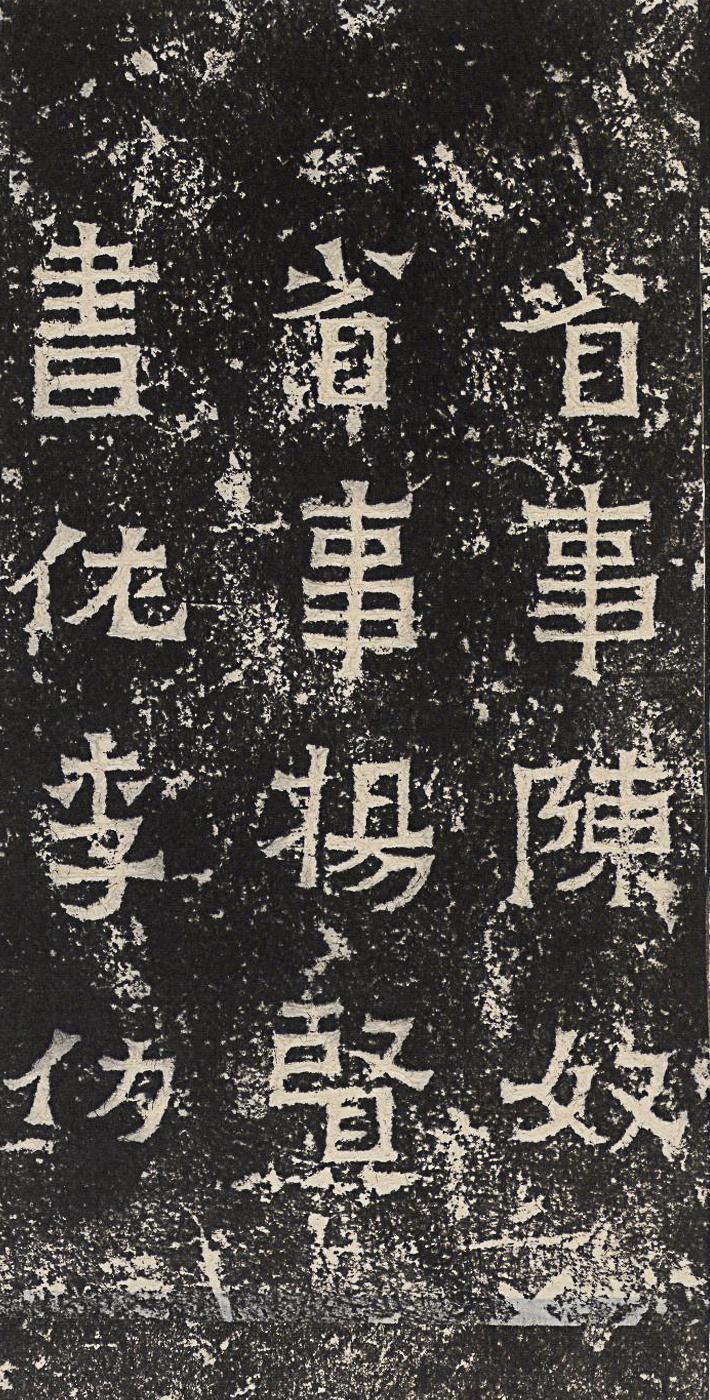 省事陳奴
省事楊賢
書佐李仂